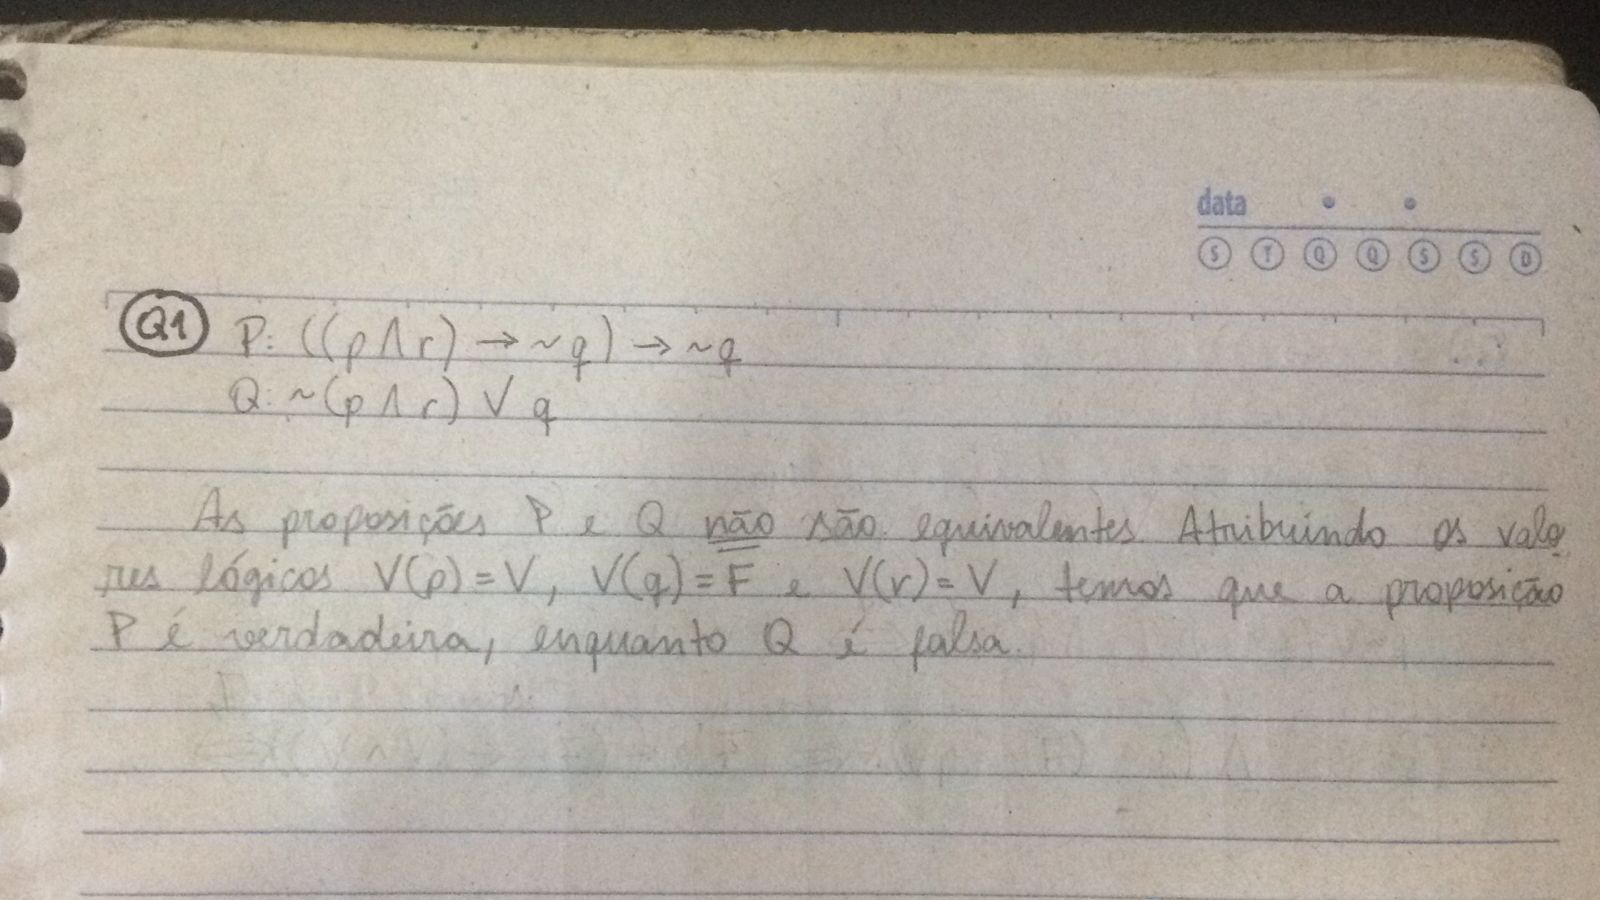 data
S T Q Q S S D
Q1 P: ((p ∧ r) → ~q) → ~q
Q: ~(p ∧ r) ∨ q
As proposições P e Q não são equivalentes Atribuindo os valo
res lógicos V(p) = V, V(q) = F e V(r) = V, temos que a proposição
P é verdadeira, enquanto Q é falsa.